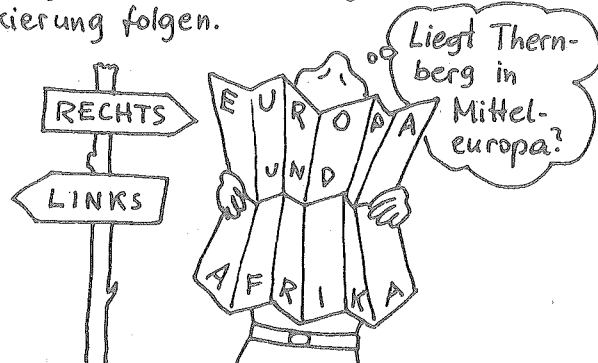 kierung folgen.
RECHTS
LINKS
EUROPA
UND
AFRIKA
Liegt Thern-
berg in
Mittel-
europa?